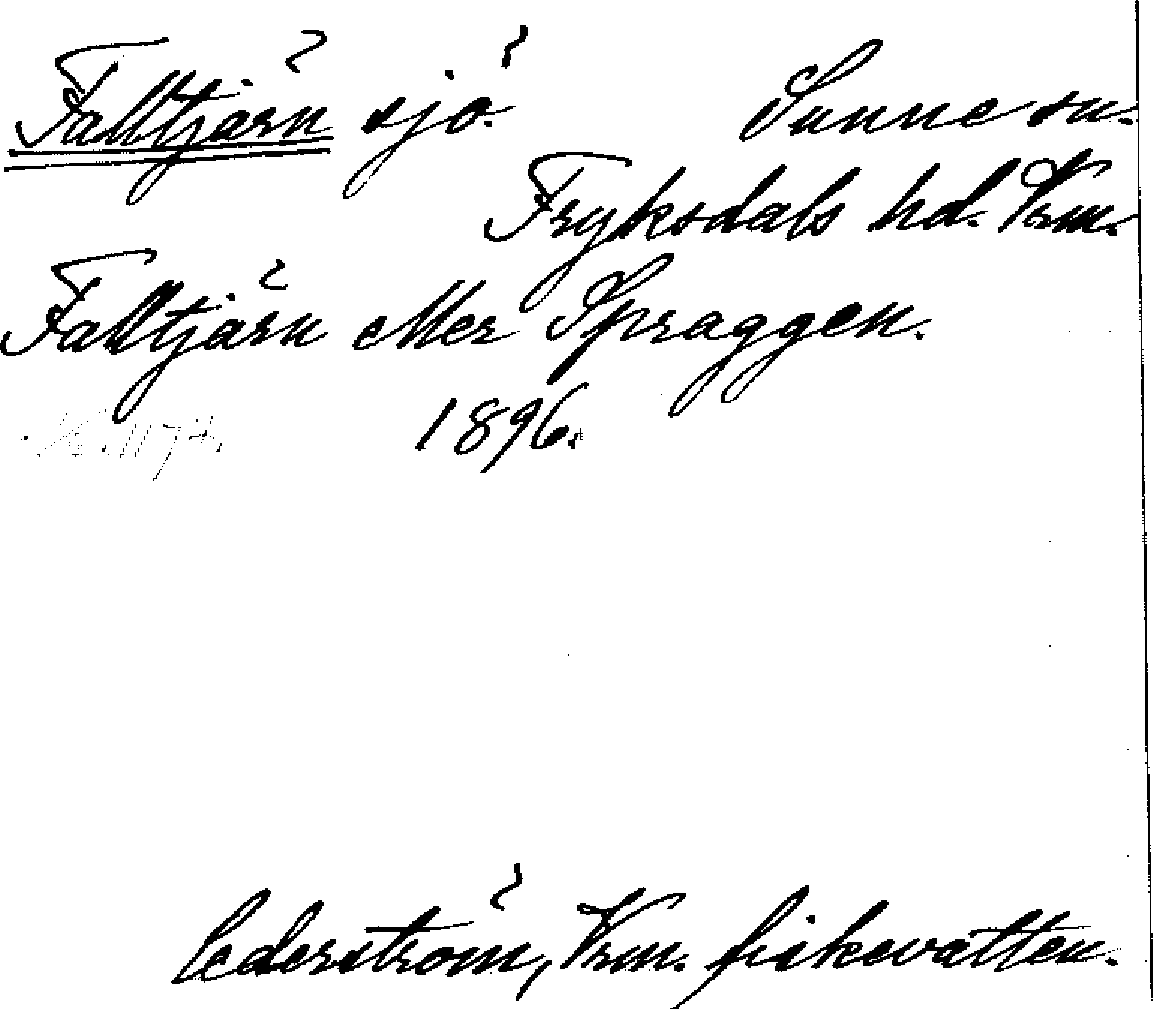 Falltjärn sjö. Sunne sn.
Fryksdals hd. Vrm.
Falltjärn eller Spraggen.
1896.
Cederström, Vrm. fiskevatten.